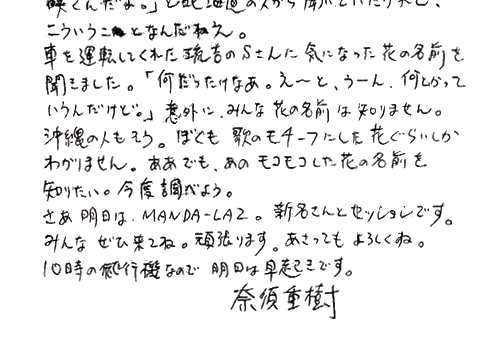 咲くんだよ。」と北海道の人から聞いていたけれど、
こういうことなんだねえ。
車を運転してくれた琉吉のSさんに気になった花の名前を
聞きました。「何だったけなあ。え〜と、うーん、何とかって
いうんだけど。」意外に、みんな花の名前は知りません。
沖縄の人もそう。ぼくも歌のモチーフにした花ぐらいしか
わかりません。ああでも、あのモコモコした花の名前を
知りたい。今度調べよう。
さあ明日は、MANDA-LA2。新名さんとセッションです。
みんなぜひ来てね。頑張ります。あさってもよろしくね。
10時の飛行機なので明日は早起きです。
奈須重樹